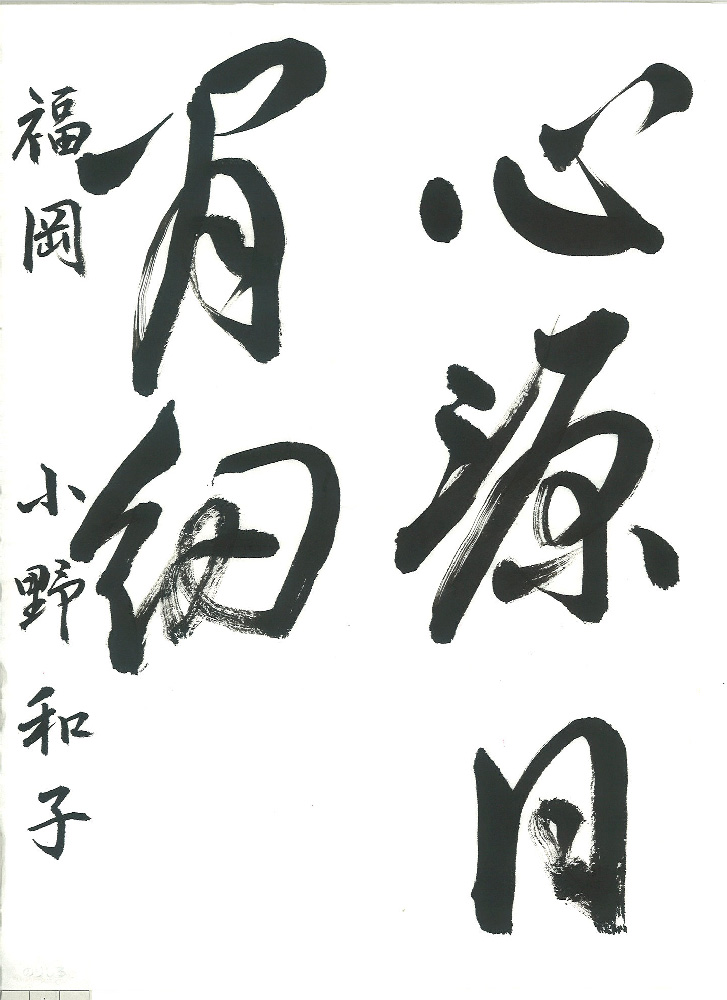 心源日
有細
福岡 小野和子